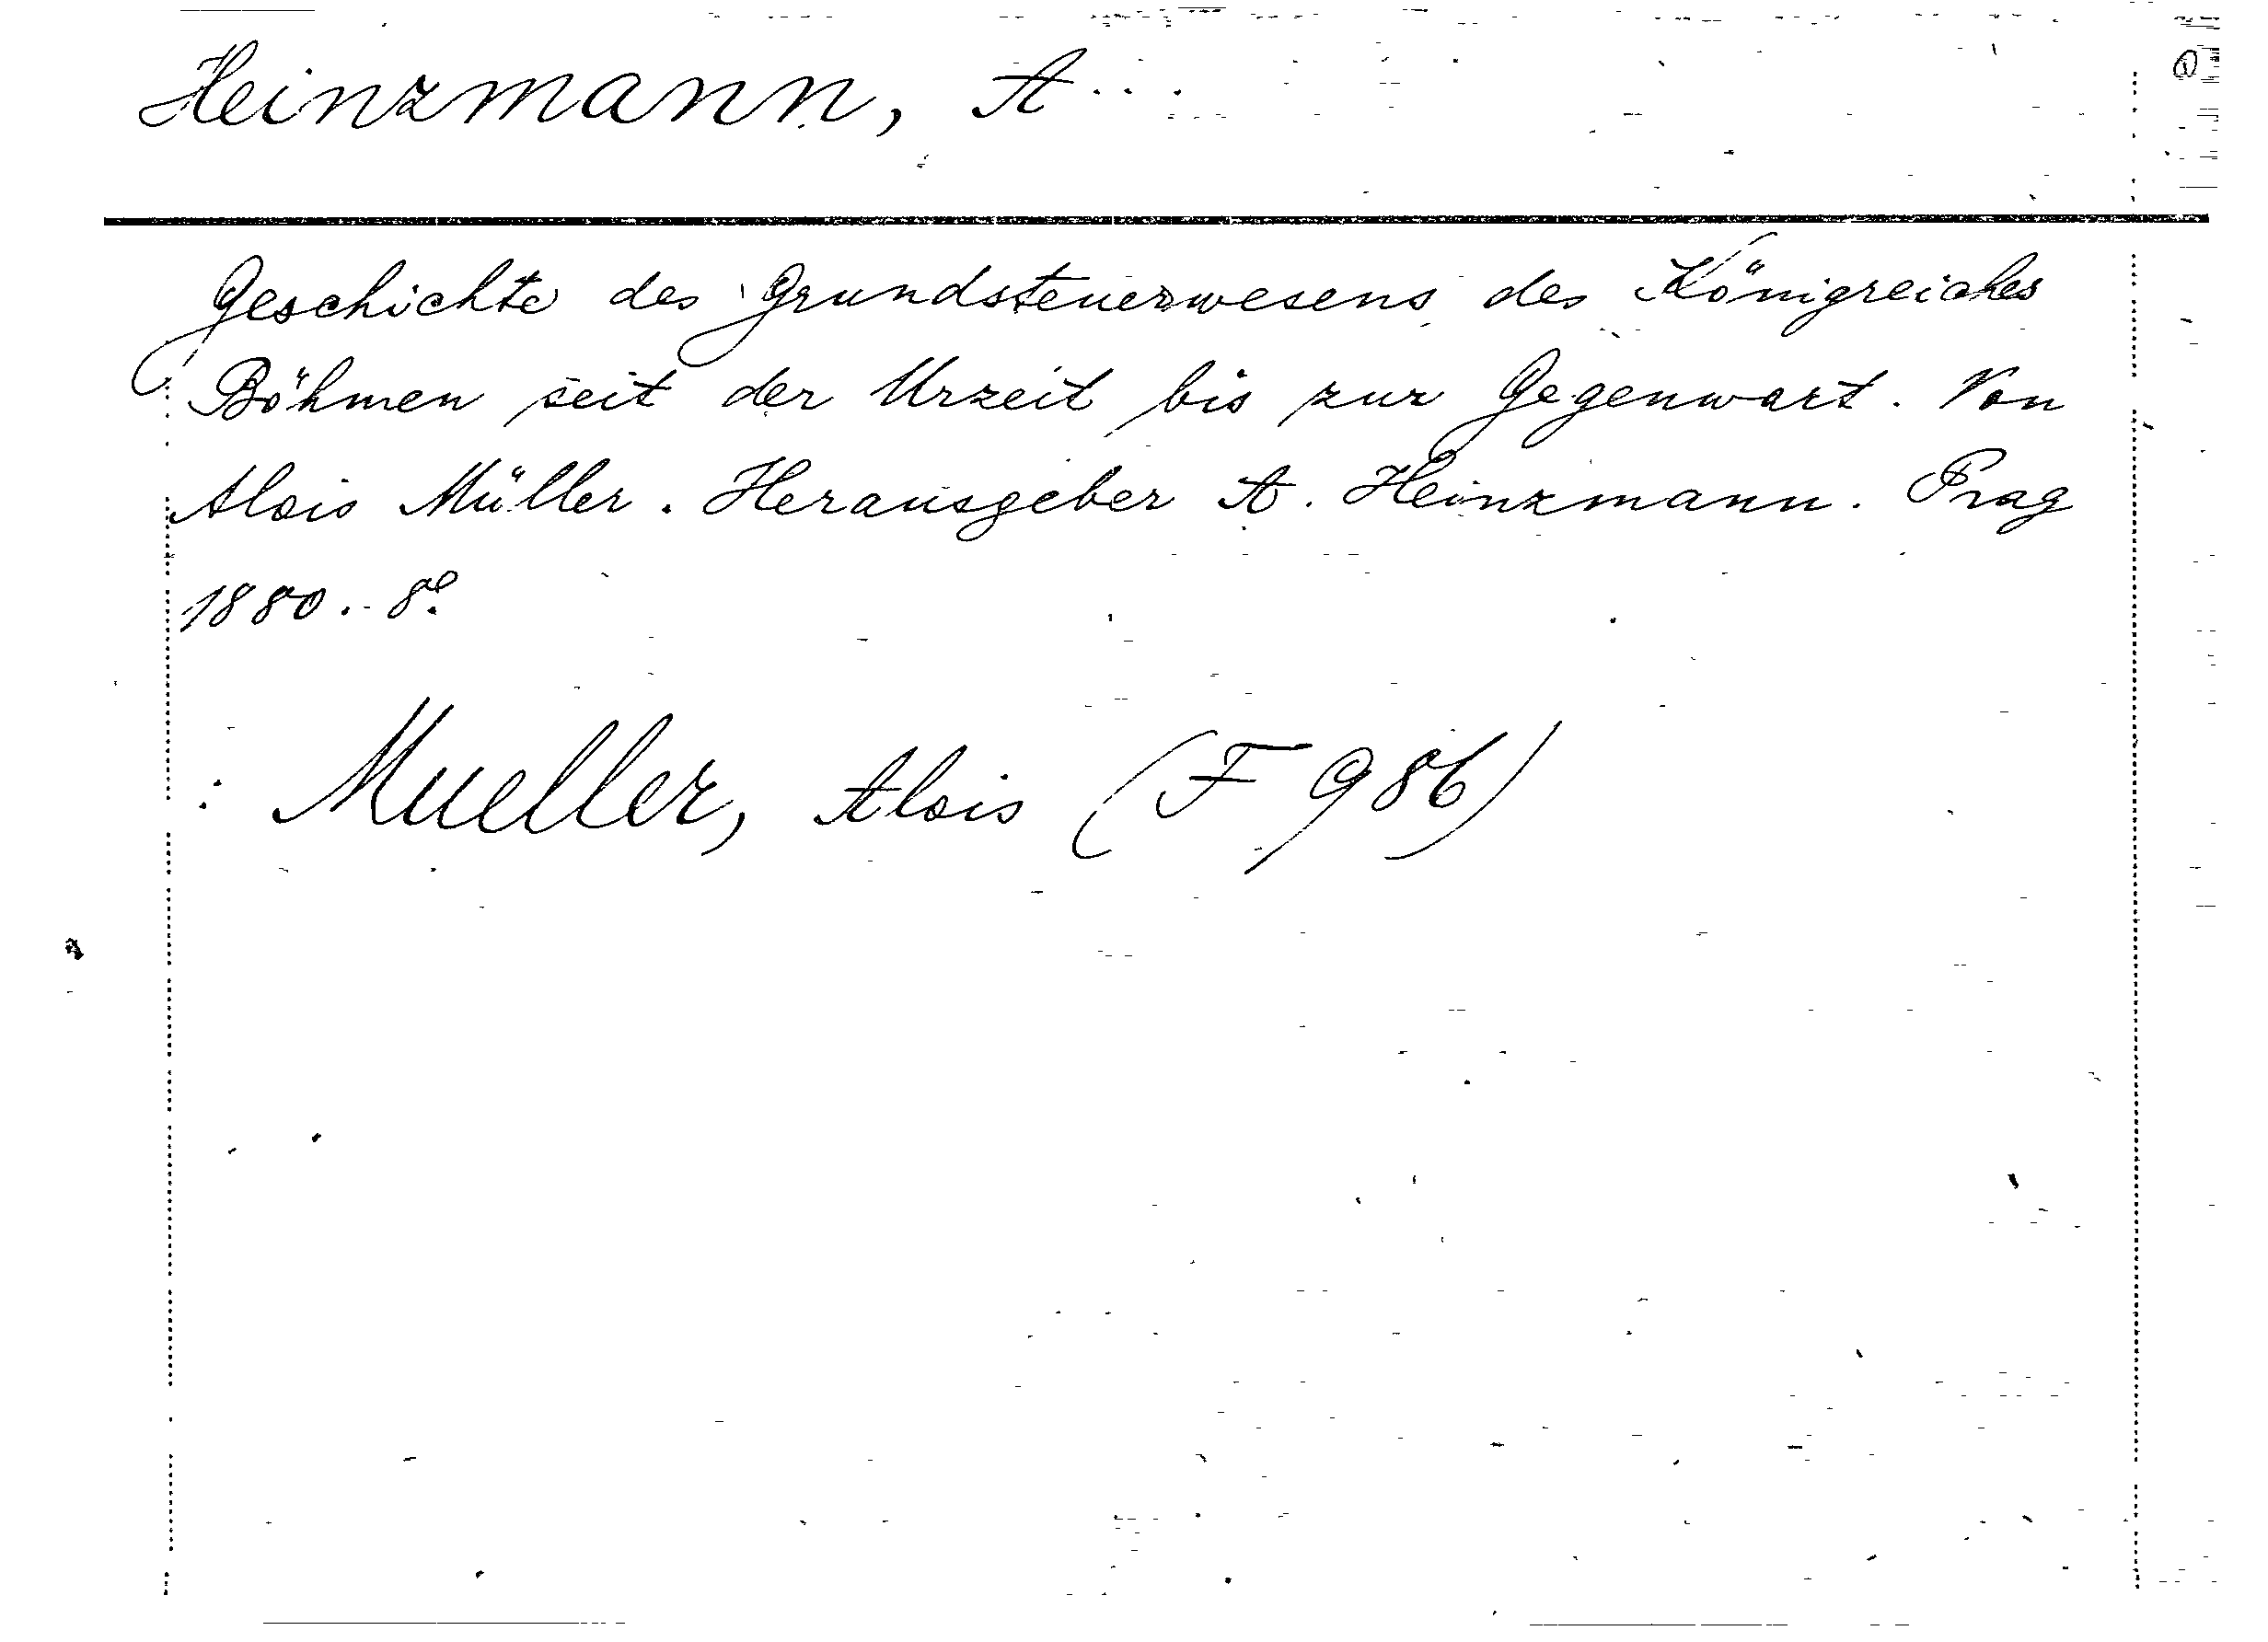 Heinzmann, A...
Geschichte des Grundsteuerwesens des Königreiches
Böhmen seit der Urzeit bis zur Gegenwart. Von
Alois Müller. Herausgeber A. Heinzmann. Prag
1880. 8º.
Mueller, Alois (F 986)